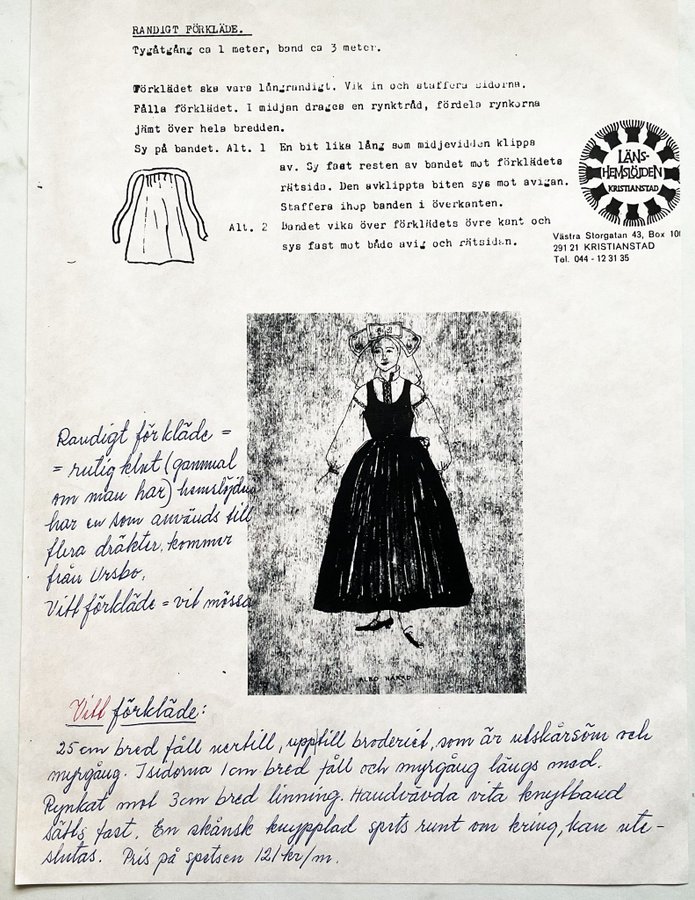 RANDIGT FÖRKLÄDE.
Tygåtgång ca 1 meter, band ca 3 meter.
Förklädet ska vara långrandigt. Vik in och staffera sidorna.
Fålla förklädet. I midjan drages en rynktråd, fördela rynkorna
jämt över hela bredden.
Sy på bandet. Alt. 1 En bit lika lång som midjevidden klipps
av. Sy fast resten av bandet mot förklädets
rätsida. Den avklippta biten sys mot avigan.
Staffera ihop banden i överkanten.
Alt. 2 Bandet viks över förklädets övre kant och
sys fast mot både avig och rätsidan.
LÄNS-
HEMSLÖJDEN
KRISTIANSTAD
Västra Storgatan 43, Box 10
291 21 KRISTIANSTAD
Tel. 044 - 12 31 35
Randigt förkläde =
= rutig klut (gammal
om man har) hemslöjden
har en som används till
flera dräkter. kommer
från Ursbo.
Vitt förkläde = vit mössa
ALBO HÄRAD
Vitt förkläde:
25 cm bred fåll nertill, upptill broderiet, som är utskårsöm och
myrgång. I sidorna 1 cm bred fåll och myrgång längs med.
Rynkat mot 3 cm bred linning. Handvävda vita knytband
sätts fast. En skånsk knypplad spets runt om kring, kan ute-
slutas. Pris på spetsen 121 kr/m.